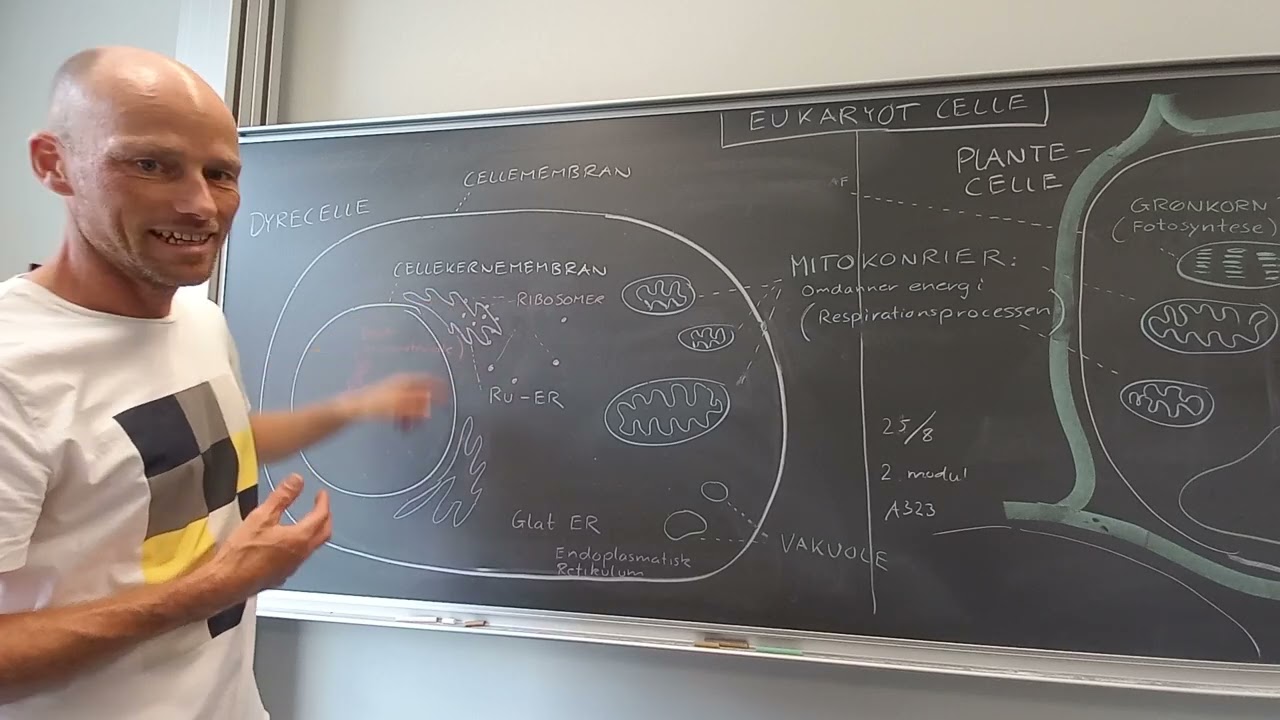 EUKARYOT CELLE
DYRECELLE
CELLEMEMBRAN
CELLEKERNEMEMBRAN
RIBOSOMER
RU-ER
Glat ER
Endoplasmatisk
Retikulum
MITOKONRIER:
Omdanner energi
(Respirationsprocessen)
VAKUOLE
25/8
2. modul
A323
PLANTE-
CELLE
GRØNKORN
(Fotosyntese)